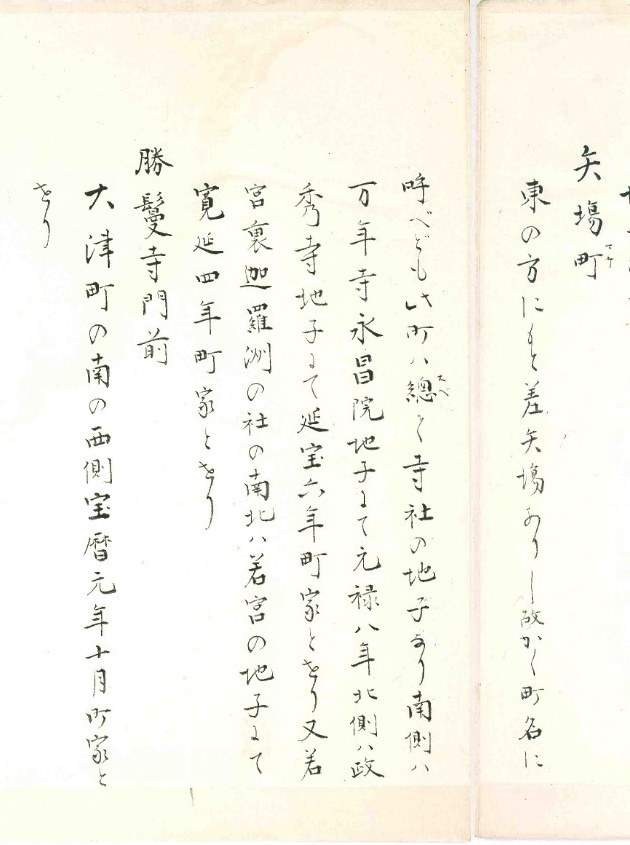 矢場町
東の方にもと差矢場ありし故かく町名に
呼べども此町ハ總て寺社の地子なり南側ハ
万年寺永昌院地子にて元禄八年北側ハ政
秀寺地子にて延宝六年町家となり又若
宮裏迦羅洲の社の南北ハ若宮の地子にて
寛延四年町家となり
勝鬘寺門前
大津町の南の西側宝暦元年十月町家と
なり